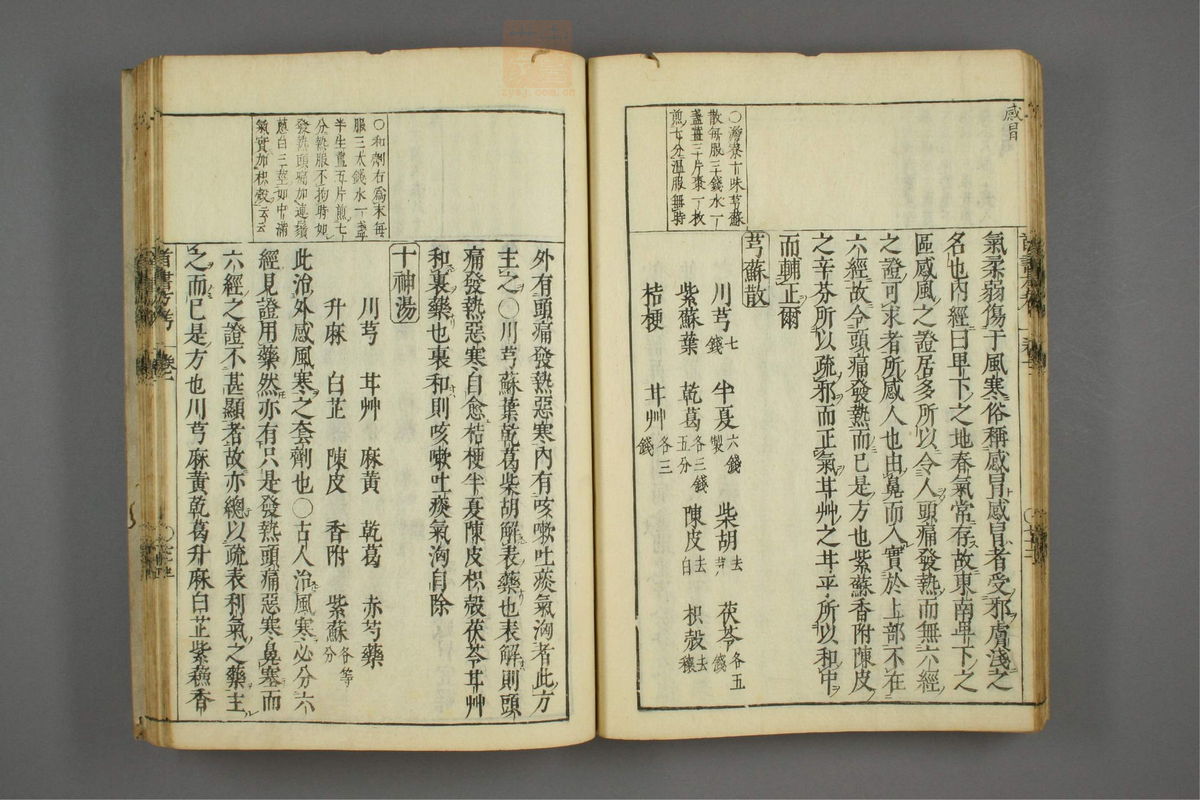 感冒
○瀕湖十味芎蘇
散每服三錢水一
盞薑三片棗一枚
煎七分溫服無時
氣柔弱傷于風寒俗稱感冒感冒者受邪膚淺之
名也內經曰卑下之地春氣常存故東南卑下之
區感風之證居多所以令人頭痛發熱而無六經
之證可求者所感人也由鼻而入實於上部不在
六經故令頭痛發熱而已是方也紫蘇香附陳皮
之辛芬所以疏邪而正氣甘艸之甘平所以和中
而輔正爾
芎蘇散
川芎七錢 半夏六錢製 柴胡去芦 茯苓各五錢
紫蘇葉 乾葛各三錢五分 陳皮去白 枳殼去穰
桔梗 甘艸各三錢
外有頭痛發熱惡寒內有咳嗽吐痰氣洶者此方
主之○川芎蘇葉乾葛柴胡解表藥也表解則頭
痛發熱惡寒自愈桔梗半夏陳皮枳殼茯苓甘艸
和裏藥也裏和則咳嗽吐痰氣洶自除
○和劑右爲末每
服三大錢水一盞
半生薑五片煎七
分熱服不拘時如
發熱頭痛加連鬚
蔥白三莖如中滿
氣實加枳殼云云
十神湯
川芎 甘艸 麻黃 乾葛 赤芍藥
升麻 白芷 陳皮 香附 紫蘇各等分
此治外感風寒之套劑也○古人治風寒必分六
經見證用藥然亦有只是發熱頭痛惡寒鼻塞而
六經之證不甚顯者故亦總以疏表利氣之藥主
之而已是方也川芎麻黃乾葛升麻白芷紫蘇香
首書方考 卷一
zysj.com.cn